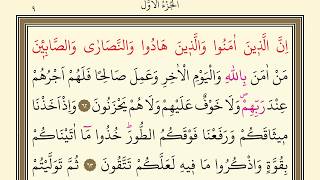 الجزء الأول ٩
اِنَّ الَّذٖينَ اٰمَنُوا وَالَّذٖينَ هَادُوا وَالنَّصَارٰى وَالصَّابِـٖٔينَ
مَنْ اٰمَنَ بِاللّٰهِ وَالْيَوْمِ الْاٰخِرِ وَعَمِلَ صَالِحًا فَلَهُمْ اَجْرُهُمْ
عِنْدَ رَبِّهِمْ وَلَا خَوْفٌ عَلَيْهِمْ وَلَا هُمْ يَحْزَنُونَ ٦٢ وَاِذْ اَخَذْنَا
مٖيثَاقَكُمْ وَرَفَعْنَا فَوْقَكُمُ الطُّورَ خُذُوا مَٓا اٰتَيْنَاكُمْ
بِقُوَّةٍ وَاذْكُرُوا مَا فٖيهِ لَعَلَّكُمْ تَتَّقُونَ ٦٣ ثُمَّ تَوَلَّيْتُمْ